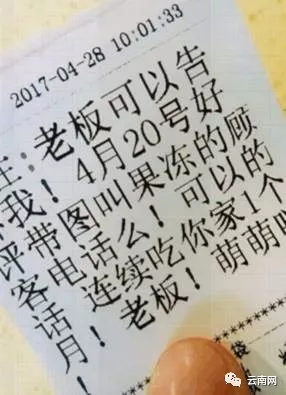 2017-04-28 10:01:33
老板可以告
我！4月20号好
评带图叫果冻的顾
客电话么！可以的
话连续吃你家1个
月！老板！萌萌
云南网